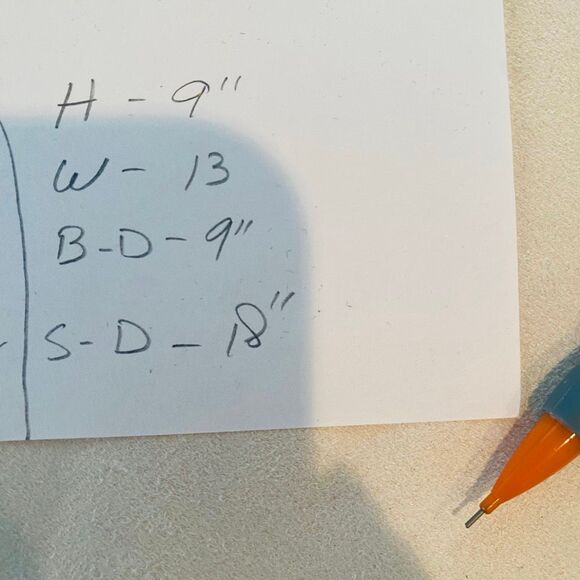 H - 9"
W - 13
B-D - 9"
S-D - 18"